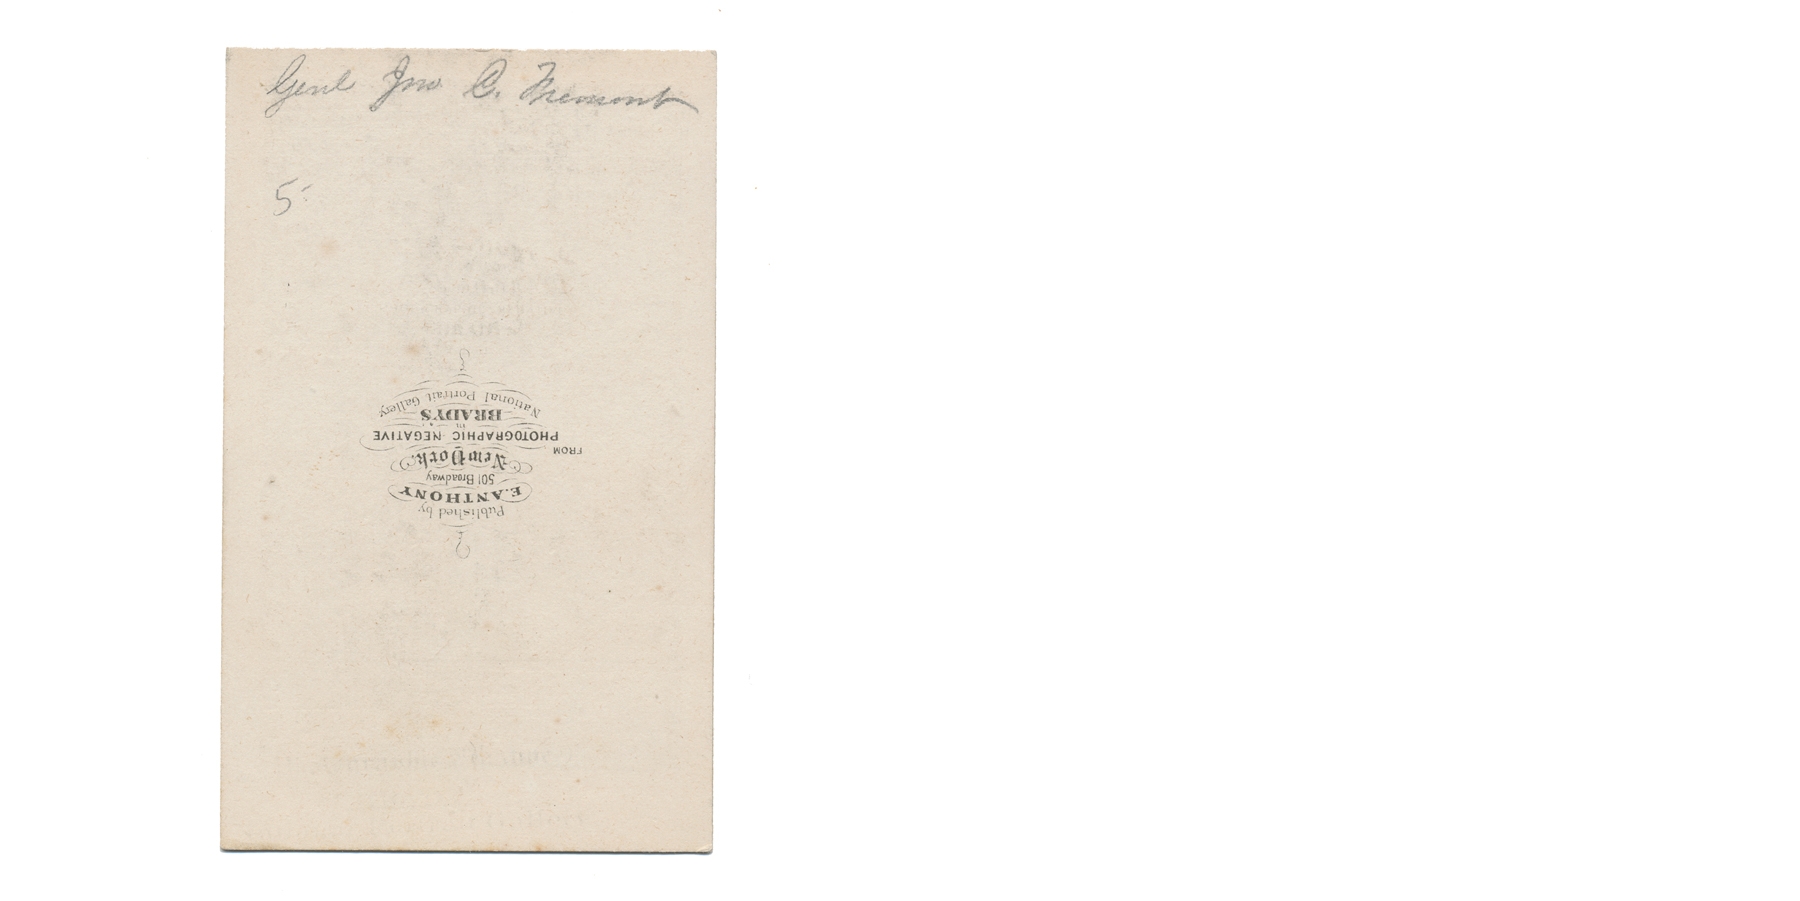 Genl Jno C. Fremont
5-
Published by
E. ANTHONY
501 Broadway
New York.
FROM
PHOTOGRAPHIC NEGATIVE
in
BRADY'S
National Portrait Gallery